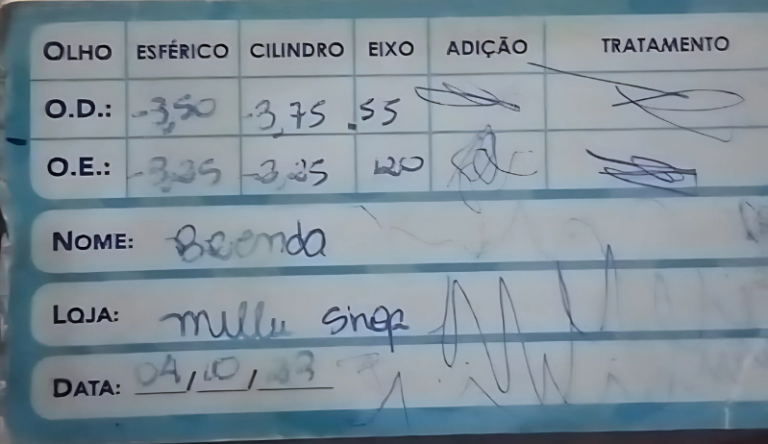 OLHO ESFÉRICO CILINDRO EIXO ADIÇÃO TRATAMENTO
O.D.: -3,50 -3,75 55
O.E.: -3,25 -3,25 120
NOME: Brenda
LOJA:
DATA: 04/10/23